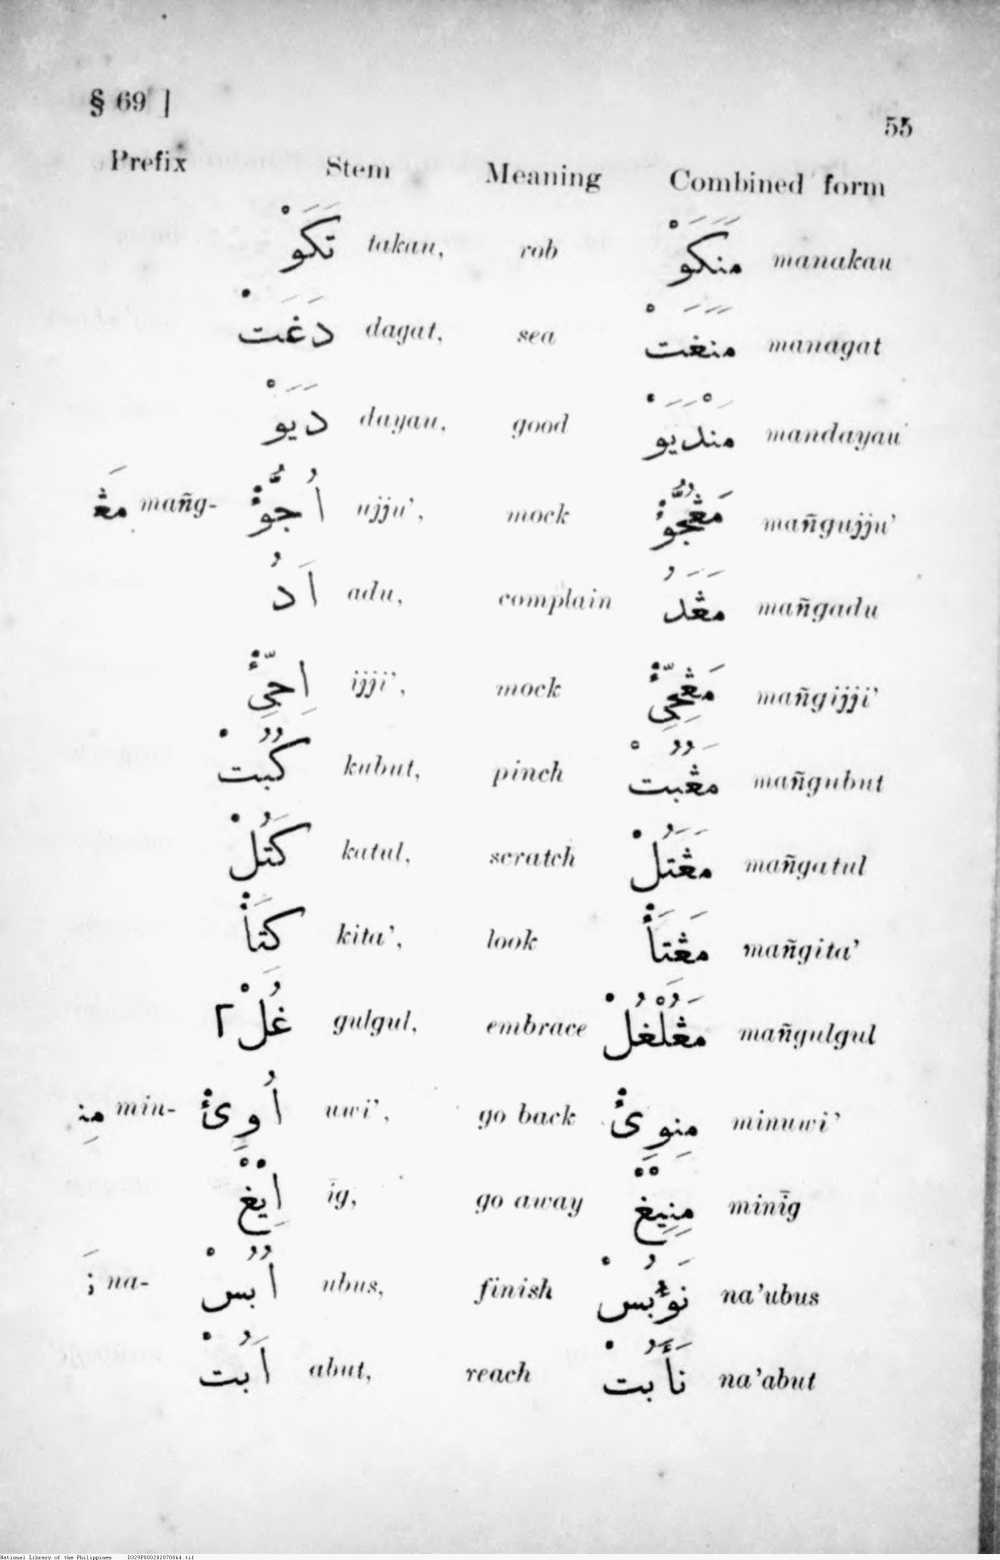 § 69 ]
55
Prefix Stem Meaning Combined form
تَكَوْ takau, rob مَنَكَوْ manakau
دَغَتْ dagat, sea مَنَغَتْ managat
دَيَوْ dayau, good مَنْدَيَوْ mandayau
مَڠ mañg- اُجُّؤْ ujju’, mock مَڠُجُّؤْ mañgujju’
اَدُ adu, complain مَڠَدُ mañgadu
اِجِّئْ ijji’, mock مَڠِجِّئْ mañgijji’
كُبُتْ kubut, pinch مَڠُبُتْ mañgubut
كَتُلْ katul, scratch مَڠَتُلْ mañgatul
كِتَأْ kita’, look مَڠِتَأْ mañgita’
غُلْ٢ gulgul, embrace مَڠُلْغُلْ mañgulgul
مِنـ min- اُوِئْ uwi’, go back مِنُوِئْ minuwi’
اِيْغْ īg, go away مِنِيْغْ minīg
نَـ na- اُبُسْ ubus, finish نَؤُبُسْ na’ubus
اَبُتْ abut, reach نَأَبُتْ na’abut
National Library of the Philippines